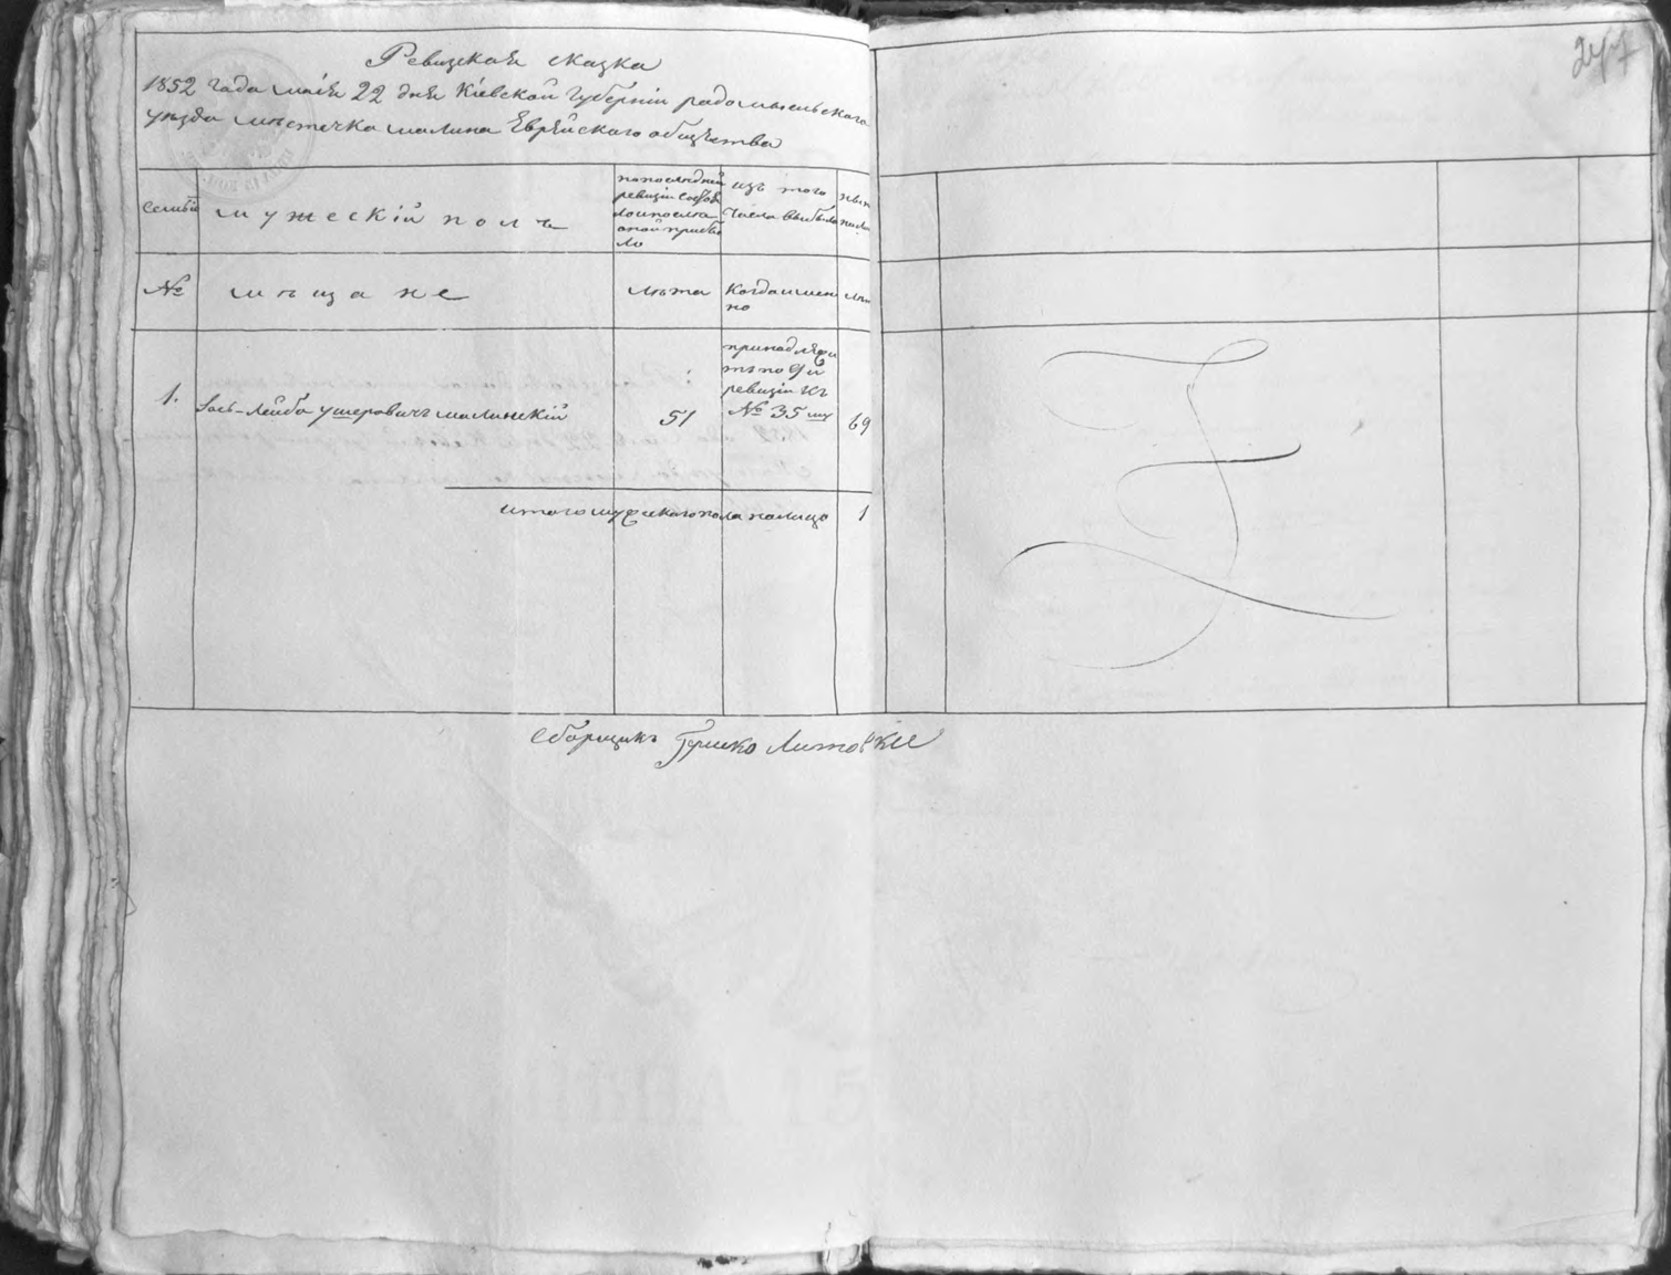 247
Ревизская сказка
1852 года маія 22 дня Кіевской Губерніи радомысльскаго
уѣзда мѣстечка малина Еврѣйскаго общѣства
семьи
мужескій полъ
по последней
ревизіи состоя
ло и после
оной прибы
ло
изъ того
числа выбыло
нын
нали
№
мѣщане
лѣта
Когда имен
но
лѣт
1.
Лейба ушеровичъ малинскій
51
принадлежи
тъ по 9й
ревизіи къ
№ 35 му
69
итого мужескаго пола налицо 1
Сборщикъ Гершко Литовски